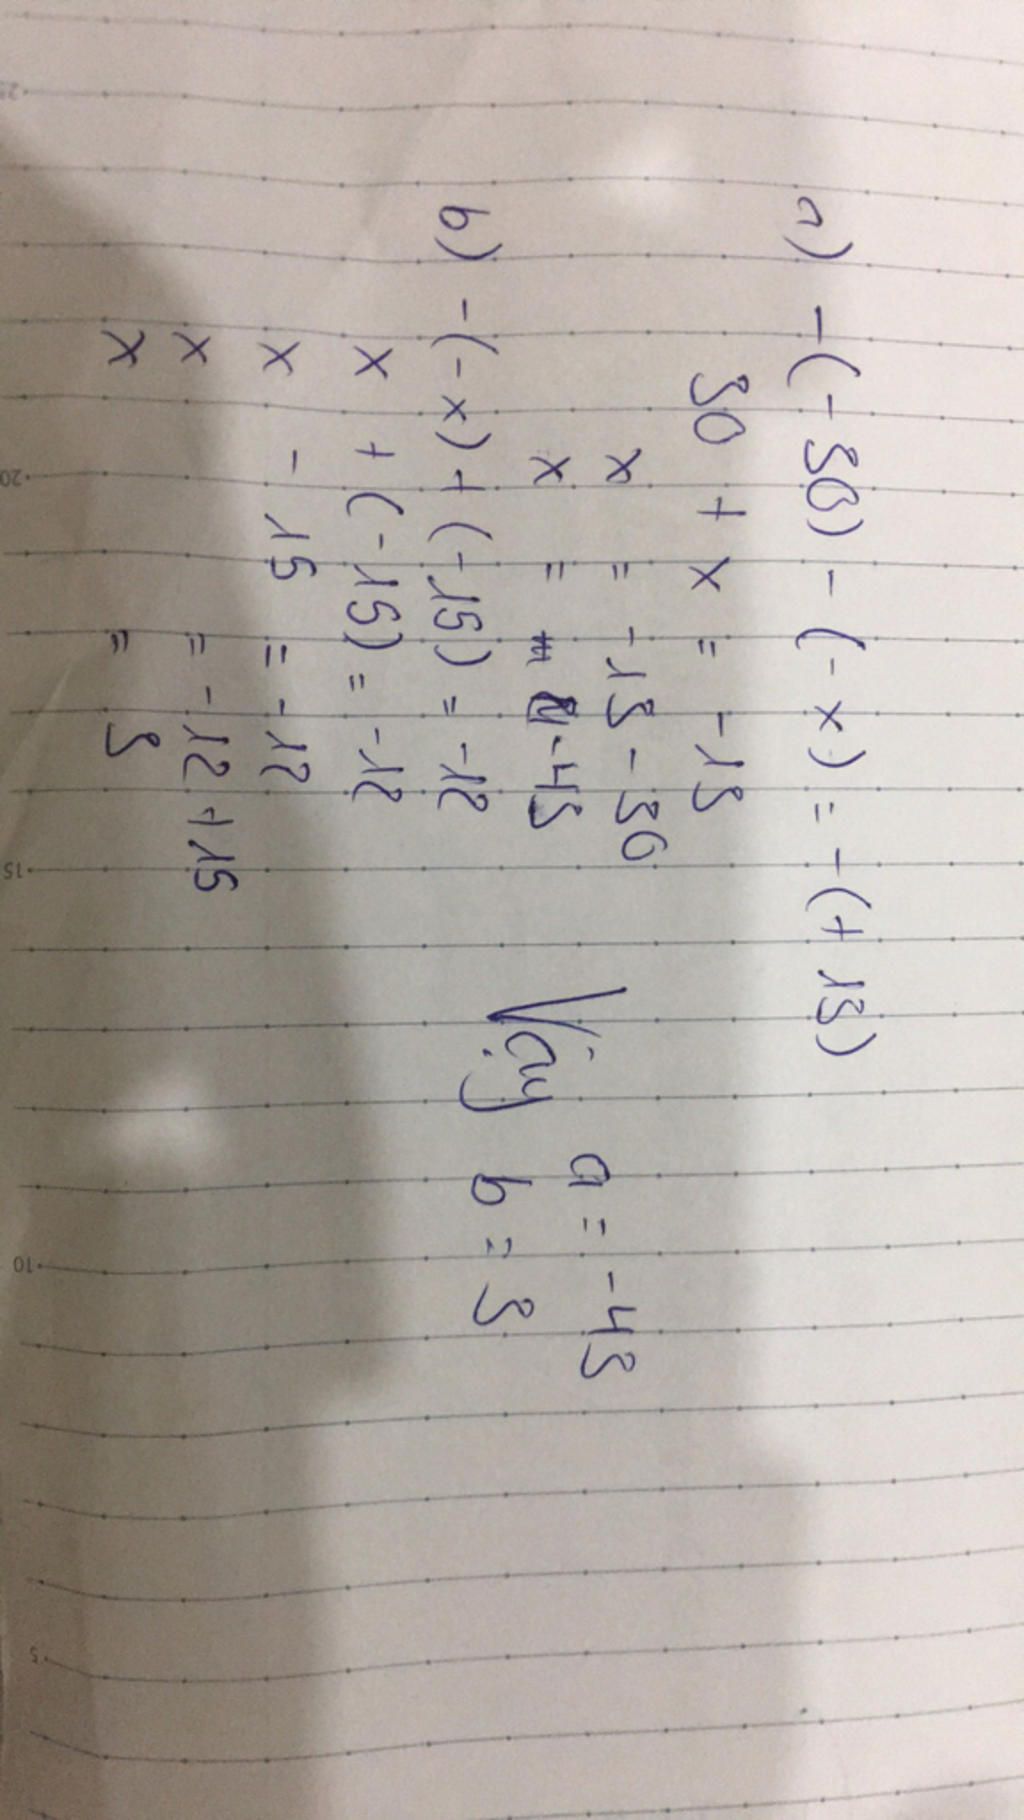 a) -(-30) - (-x) = -(+13)
30 + x = -13
x = -13-30
x = -43
b) -(-x) + (-15) = -12
x + (-15) = -12
x - 15 = -12
x = -12+15
x = 3
Vậy a = -43
b = 3
25
20
15
10
5